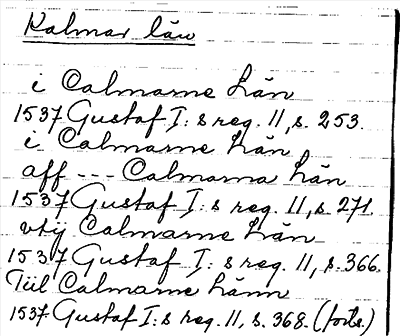 Kalmar län
i Calmarne Län
1537 Gustaf I:s reg. 11, s. 253.
i Calmarne Län
aff --- Calmarna Län
1537 Gustaf I:s reg. 11, s. 271.
vtÿ Calmarne Län
1537 Gustaf I:s reg. 11, s. 366.
Tül Calmarne Länn
1537 Gustaf I:s reg. 11, s. 368. (forts.)